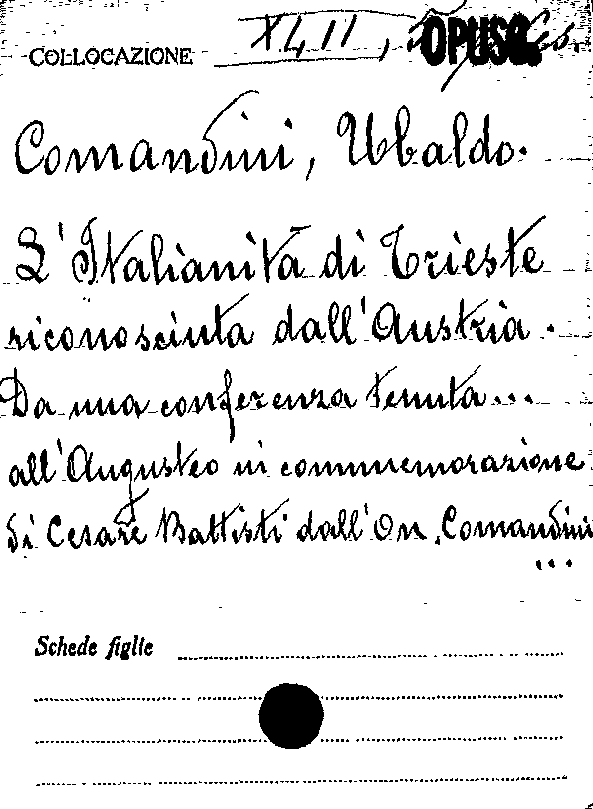 COLLOCAZIONE XLII, OPUSC.
Comandini, Ubaldo.
L'Italianità di Trieste
riconosciuta dall'Austria.
Da una conferenza tenuta...
all'Augusteo in commemorazione
di Cesare Battisti dall'On. Comandini
...
Schede figlie